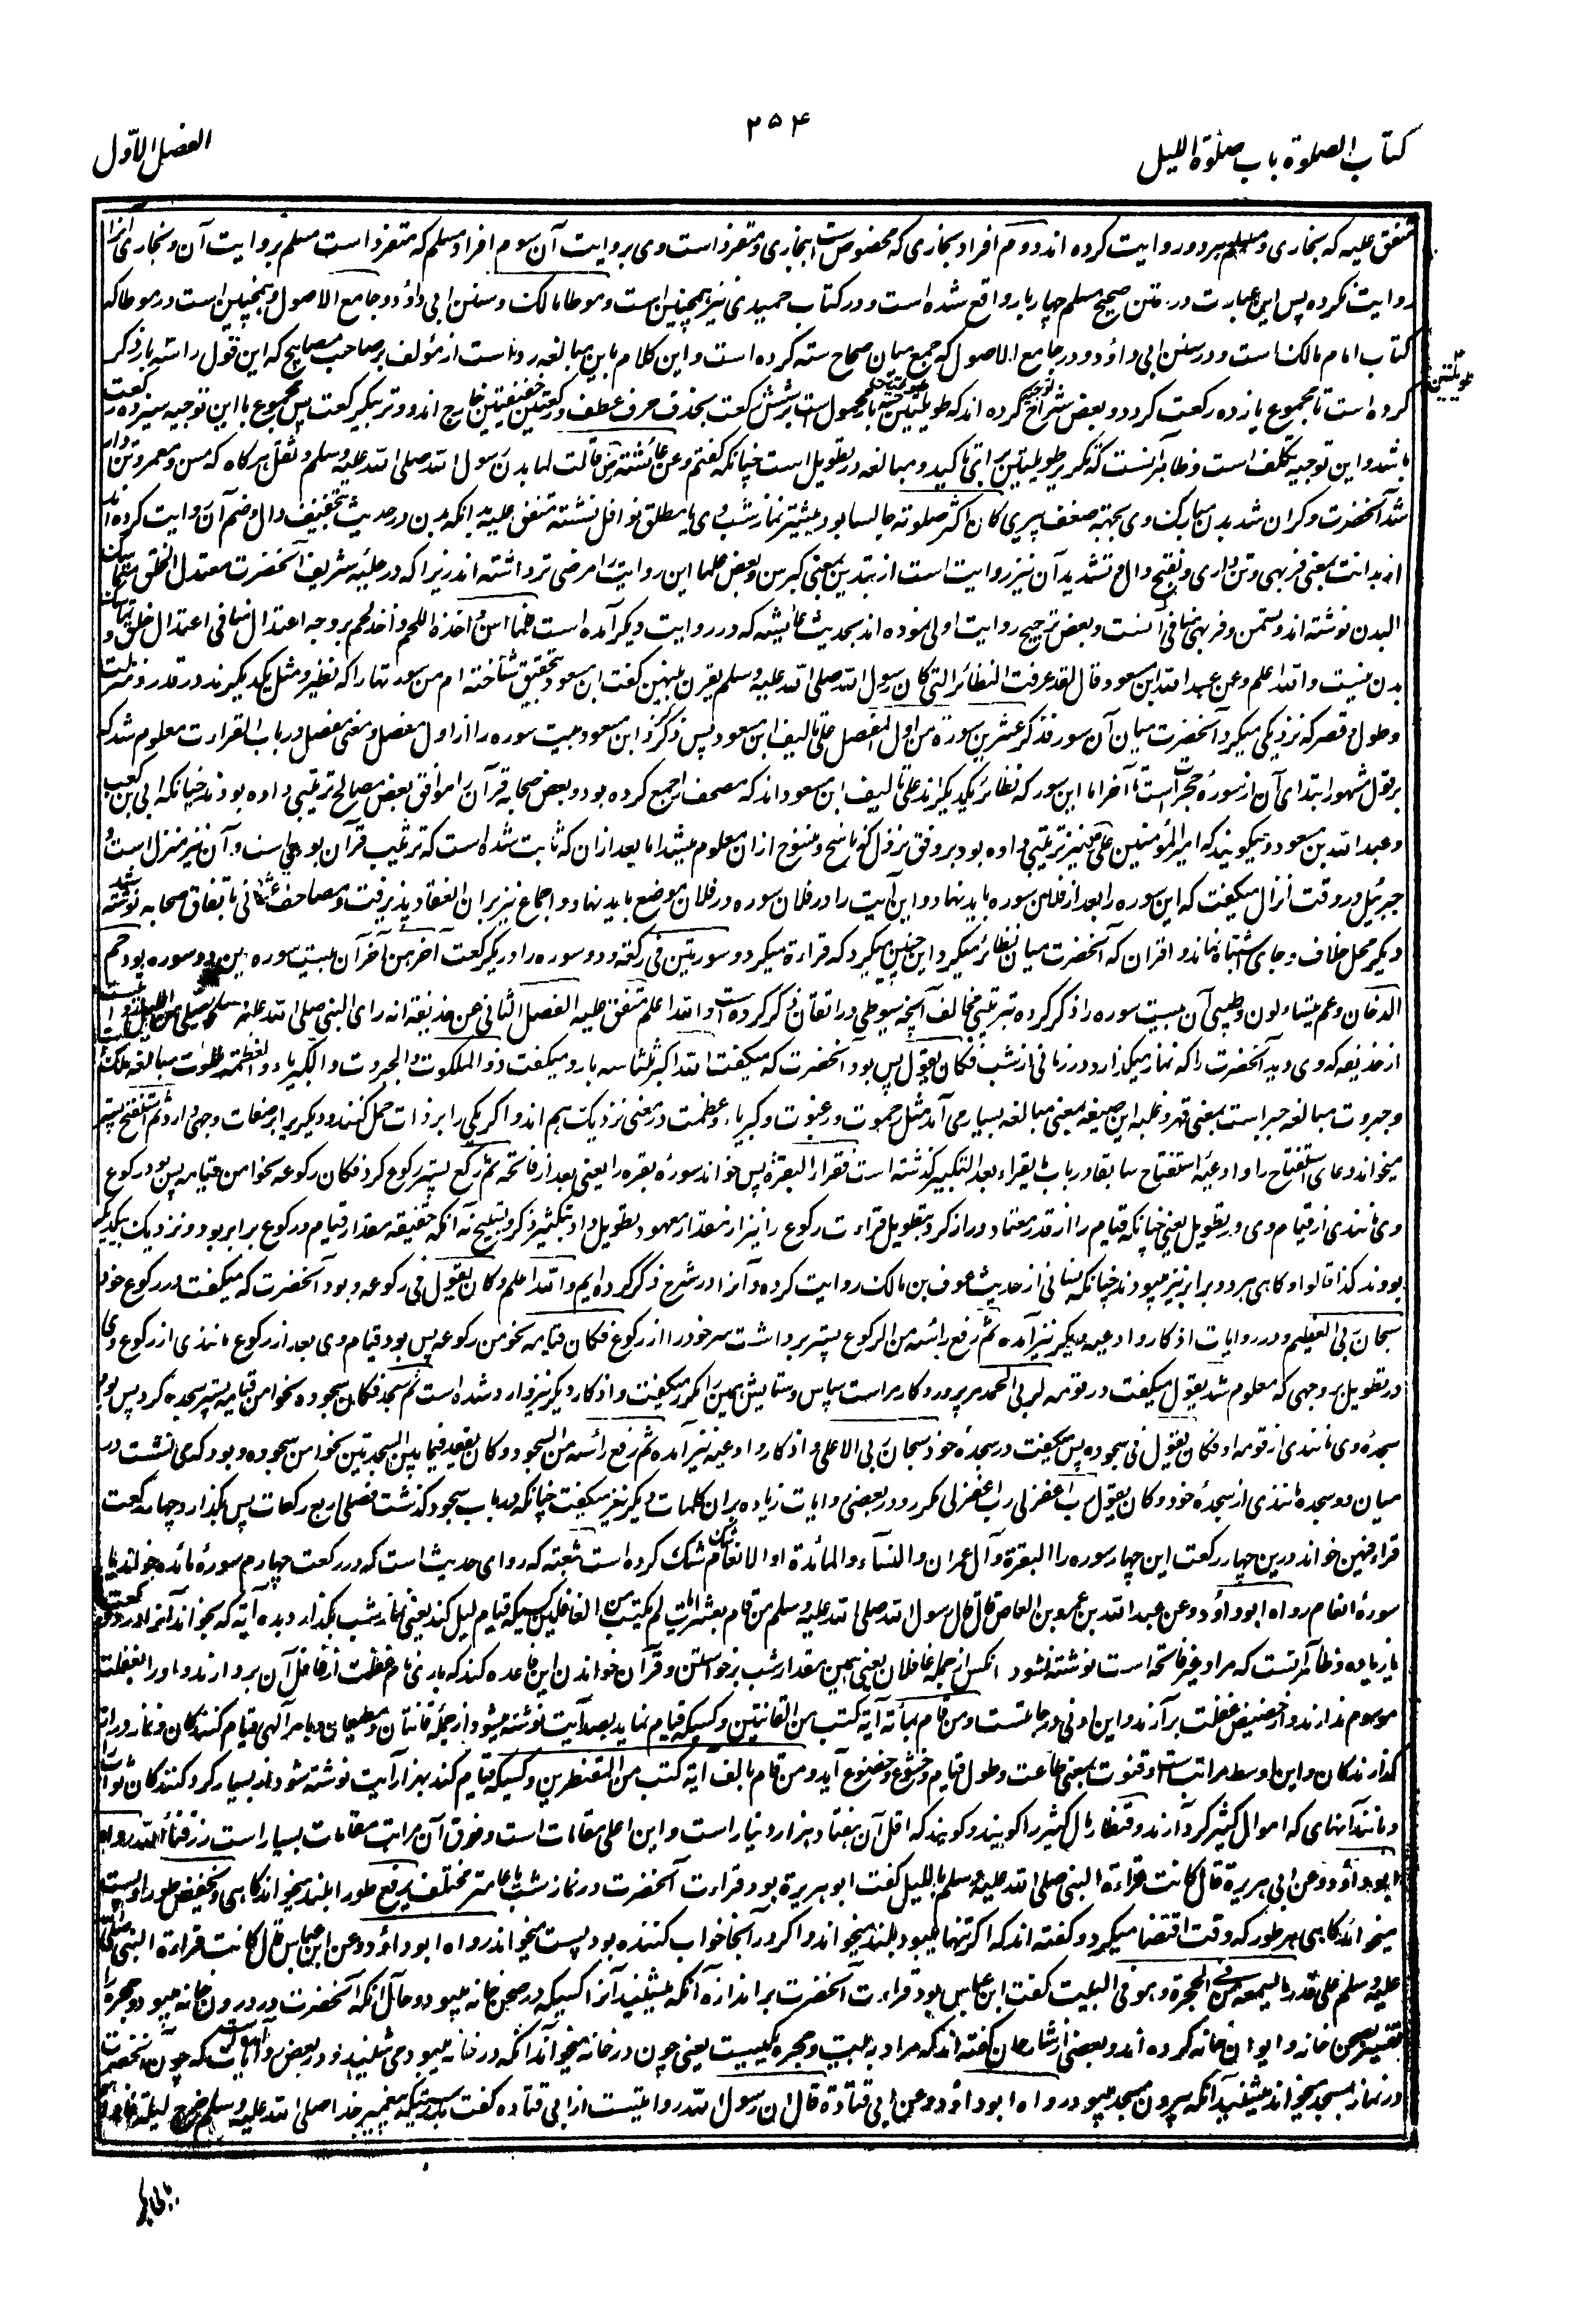 ۲۵۴
کتاب الصلوة باب صلوة اللیل
الفصل الاوّل
متفق علیه که بخاری و مسلم هر دو روایت کرده اند دوم افراد بخاری که مخصوص است ببخاری و متفرد است وی بروایت آن سوم افراد مسلم که متفرد است مسلم بروایت آن و بخاری آنرا
روایت نکرده پس این عبارت در متن صحیح مسلم چهار بار واقع شده است و در کتاب حمیدی نیز همچنین است و موطا مالک و سنن ابی داؤد و جامع الاصول و همچنین است در موطا که
کتاب امام مالک است و در سنن ابی داؤد و در جامع الاصول که جمع میان صحاح سته کرده است و این کلام باین مبالغه رد است از مؤلف بر صاحب مصابیح که این قول را سه بار ذکر
طویلتین
کرده است تا مجموع یازده رکعت گردد و بعض شراح توجیه کرده اند که طویلتین بار محمول است بر شش رکعت بحذف حرف عطف و رکعتین خفیفتین خارج اند و وتر یک رکعت پس مجموع با این توجیه سیزده رکعت
باشد و این توجیه تکلف است و ظاهر آنست که تکریر طویلتین برای تاکید و مبالغه در تطویل است چنانکه گفتم وعن عائشة رض قالت لما بدن رسول الله صلی الله علیه وسلم وثقل هر گاه که مسن و معمر و تن دار
شد آنحضرت و گران شد بدن مبارک وی بجهت ضعف پیری کان اکثر صلوته جالسا بود بیشتر نماز شب وی یا مطلق نوافل نشسته متفق علیه بدانکه بدن در حدیث بتخفیف دال و ضم آن روایت کرده اند
از بدانت بمعنی فربهی و تن داری و بفتح دال و تشدید آن نیز روایت است از تبدین بمعنی کبر سن و بعض علما این روایت را مرضی تر داشته اند زیرا که در حلیه شریف آنحضرت معتدل الخلق متماسک
البدن نوشته اند و سمن و فربهی منافی آنست و بعض ترجیح روایت اولی نموده اند بحدیث عائشه که در روایت دیگر آمده است فلما اسن و اخذه اللحم و اخذ لحم بر وجه اعتدال منافی اعتدال خلق و تماسک
بدن نیست والله اعلم وعن عبد الله ابن مسعود قال لقد عرفت النظائر التی کان رسول الله صلی الله علیه وسلم یقرن بینهن گفت ابن مسعود بتحقیق شناخته ام من سورتها را که نظیر و مثل یکدیگرند در قدر و مرتبت
و طول و قصر که نزدیکی میکرد آنحضرت میان آن سور فذکر عشرین سورة من اول المفصل علی تالیف ابن مسعود پس ذکر کرد ابن مسعود بیست سوره را از اول مفصل و معنی مفصل در باب القراءت معلوم شد که
بر قول مشهور ابتدای آن از سوره حجرات است تا آخر اما این سور که نظائر یکدیگراند علی تالیف ابن مسعود اند که مصحف را جمع کرده بود و بعض صحابه قرآن را موافق بعض مصالح ترتیبی داده بودند چنانکه ابی بن کعب
و عبد الله بن مسعود و میگویند که امیر المؤمنین علی نیز ترتیبی داده بود بر وفق نزول که ناسخ و منسوخ از ان معلوم میشد اما بعد ازان که ثابت شده است که ترتیب قرآن بوحی است و آن نیز منزل است و
جبرئیل در وقت انزال میگفت که این سوره را بعد از فلان سوره باید نهاد و این آیت را در فلان سوره در فلان موضع باید نهاد و اجماع نیز بران انعقاد پذیرفت و مصاحف عثمانی باتفاق صحابه نوشته شد
دیگر محل خلاف و جای اشتباه نماند و اقران که آنحضرت میان نظائر میکرد این چنین میکرد که قراءة میکرد سورتین فی رکعة دو سوره را در یک رکعت آخرهن آخر آن بیست سوره این دو سوره بود حم
الدخان وعم یتساءلون و طیبی آن بیست سوره را ذکر کرده بترتیبی مخالف آنچه سیوطی در اتقان ذکر کرده است والله اعلم متفق علیه الفصل الثانی عن حذیفة انه رای النبی صلی الله علیه وسلم یصلی من اللیل روایت است
از حذیفه که وی دید آنحضرت را که نماز میگذارد در زمانی از شب فکان یقول پس بود آنحضرت که میگفت الله اکبر ثلثا سه بار و میگفت ذو الملکوت والجبروت والکبریاء والعظمة ملکوت مبالغه ملک است
و جبروت مبالغه جبر است بمعنی قهر و غلبه این صیغه بمعنی مبالغه بسیار می آید مثل رحموت و رغبوت و کبریاء و عظمت در معنی نزدیک بهم اند و اگر یکی را بر ذات حمل کنند و دیگر را بر صفات وجهی دارد ثم استفتح پستر
میخواند دعای استفتاح را و ادعیه استفتاح سابقا در باب ما یقراء بعد التکبیر گذشته است فقرا البقرة پس خواند سوره بقره را یعنی بعد از فاتحه ثم رکع پستر رکوع کرد فکان رکوعه نحوا من قیامه پس بود رکوع
وی مانندی از قیام وی در تطویل یعنی چنانکه قیام را از قدر معتاد دراز کرد بتطویل قراءت رکوع را نیز از مقدار معهود تطویل داد بتکثیر ذکر و تسبیح نه آنکه حقیقه مقدار قیام و رکوع برابر بود و نزدیک بیکدیگر
بودند کذا قالوا و گاهی هر دو برابر نیز میبودند چنانکه نسائی از حدیث عوف بن مالک روایت کرده و آنرا در شرح ذکر کرده ایم والله اعلم وکان یقول فی رکوعه و بود آنحضرت که میگفت در رکوع خود
سبحان ربی العظیم و در روایات اذکار و ادعیه دیگر نیز آمده ثم رفع راسه من الرکوع پستر برداشت سر خود را از رکوع فکان قیامه نحوا من رکوعه پس بود قیام وی بعد از رکوع مانندی از رکوع وی
در تطویل بر وجهی که معلوم شد یقول میگفت در قومه لربی الحمد مر پروردگار مراست سپاس و ستایش همین را مکرر میگفت و اذکار دیگر نیز وارد شده است ثم سجد فکان سجوده نحوا من قیامه پستر سجده کرد پس بود
سجده وی مانندی از قومه او فکان یقول فی سجوده پس میگفت در سجده خود سبحان ربی الاعلی و اذکار و ادعیه نیز آمده ثم رفع راسه من السجود وکان یقعد فیما بین السجدتین نحوا من سجوده و بود که می نشست در
میان دو سجده مانندی از سجده خود وکان یقول رب اغفر لی رب اغفر لی مکرر و در بعضی روایات زیاده بران کلمات دیگر نیز میگفت چنانکه در باب سجود گذشت فصلی اربع رکعات پس بگذارد چهار رکعت
قراء فیهن خواند درین چهار رکعت این چهار سوره را البقرة وآل عمران والنساء والمائدة او الانعام شک شک کرده است شعبه که راوی حدیث است که در رکعت چهارم سوره مائده خواند یا
سوره انعام رواه ابو داؤد وعن عبد الله بن عمرو بن العاص قال قال رسول الله صلی الله علیه وسلم من قام بعشر آیات لم یکتب من الغافلین کسیکه قیام لیل کند یعنی نماز شب بگذارد بده آیه که بخواند آنرا در دو رکعت
یا زیاده و ظاهر آنست که مراد غیر فاتحه است نوشته نشود آنکس از جمله غافلان یعنی همین مقدار شب برخواستن و قرآن خواندن این فائده کند که باری نام غفلت از فاعل آن بردارند و او را بغفلت
موسوم ندارند و از حضیض غفلت برآرند و این ادنی درجاتست ومن قام بمأة آیة کتب من القانتین و کسیکه قیام نماید بصد آیت نوشته میشود از جمله قانتان و مطیعان و بامر الهی قیام کنندگان و نماز دراز
گذارندگان و این اوسط مراتب است و قنوت بمعنی طاعت و طول قیام و خشوع و خضوع آید ومن قام بالف آیة کتب من المقنطرین و کسیکه قیام کند بهزار آیت نوشته شود از بسیار گرد کنندگان ثواب
و مانند آنهای که اموال کثیر گرد آرند و قنطار مال کثیر را گویند و گویند که اقل آن هفتاد هزار دینار است و این اعلی مقامات است و فوق آن مراتب مقامات بسیار است رزقنا الله رواه
ابو داؤد وعن ابی هریرة قال کانت قراءة النبی صلی الله علیه وسلم باللیل گفت ابو هریرة بود قراءت آنحضرت در نماز شب یا عامتر مختلف یرفع طورا بلند میخواند گاهی ویخفض طورا و پست
میخواند گاهی هر طور که وقت اقتضا میکرد و گفته اند که اگر تنها میبود بلند میخواند و اگر در آنجا خواب کننده بود پست میخواند رواه ابو داؤد وعن ابن عباس قال کانت قراءة النبی صلی الله
علیه وسلم علی قدر ما یسمعه من فی الحجرة وهو فی البیت گفت ابن عباس بود قراءت آنحضرت بر اندازه آنکه میشنید آنرا کسیکه در صحن خانه میبود و حال آنکه آنحضرت در درون خانه میبود و حجره را
تفسیر بصحن خانه و ایوان خانه کرده اند و بعضی از شارحان گفته اند که مراد به بیت و حجره یکیست یعنی چون در خانه میخواند آنکه در خانه میبود می شنید و در بعض روایات آمده است که چون آنحضرت
در نماز مسجد میخواند میشنید آنکه بیرون مسجد میبود رواه ابو داؤد وعن ابی قتادة قال ان رسول الله روایتست از ابی قتاده گفت بدرستیکه پیغمبر خدا صلی الله علیه وسلم خرج لیلة